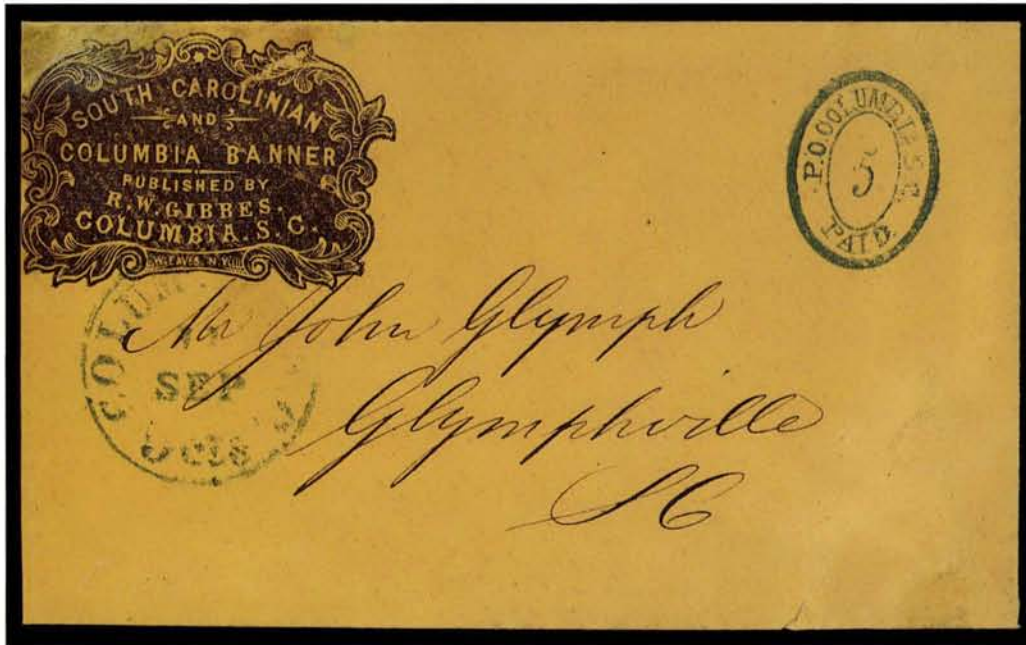 SOUTH CAROLINIAN
AND
COLUMBIA BANNER
PUBLISHED BY
R.W. GIBBES.
COLUMBIA. S. C.
P.O. COLUMBIA S.C.
5
PAID.
SEP
5 cts
Mr John Glymph
Glymphville
SC